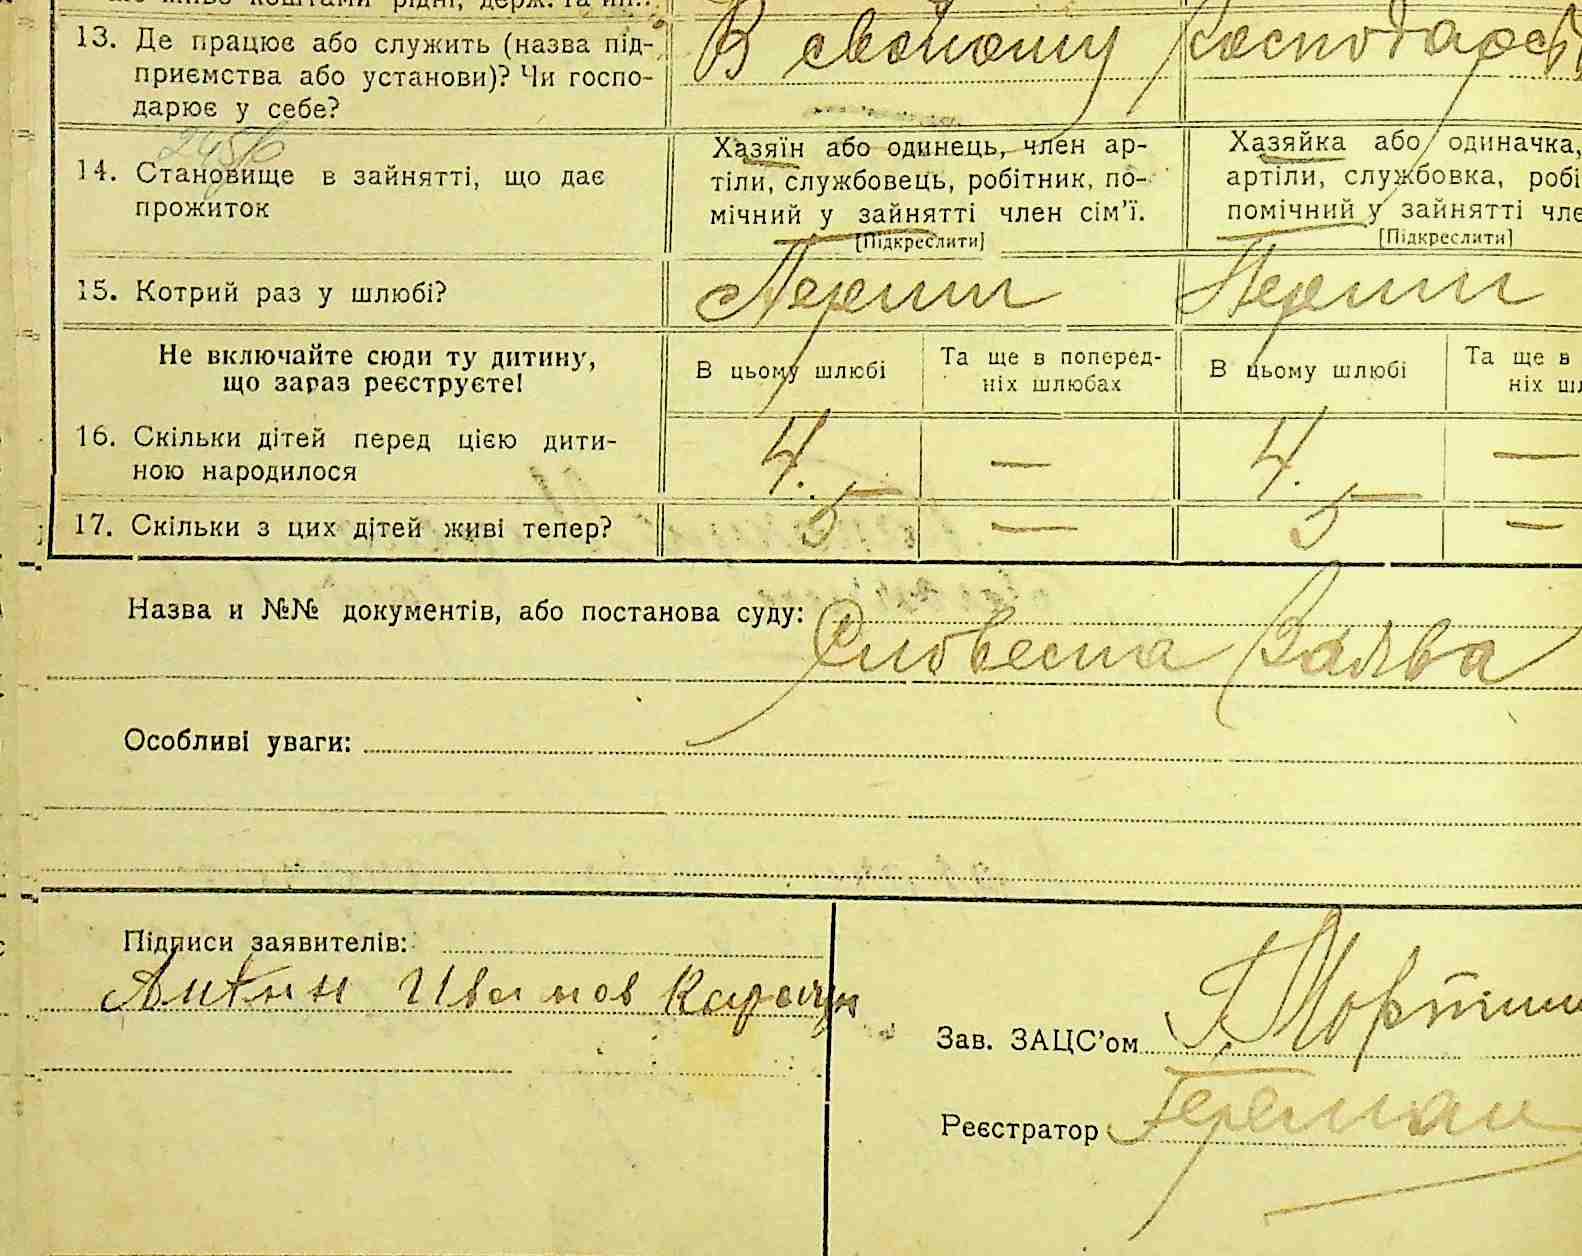 13. Де працює або служить (назва під- В своиому господарст
приємства або установи)? Чи госпо-
дарює у себе?
14. Становище в зайнятті, що дає
прожиток
Хазяїн або одинець, член ар-
тіли, службовець, робітник, по-
мічний у зайнятті член сім'ї.
[Підкреслити]
Хазяйка або одиначка,
артіли, службовка, робі
помічний у зайнятті чле
[Підкреслити]
15. Котрий раз у шлюбі? Перший Перший
Не включайте сюди ту дитину,
що зараз реєструєте!
В цьому шлюбі
Та ще в поперед-
ніх шлюбах
В цьому шлюбі
Та ще в
ніх шл
16. Скільки дітей перед цією дити-
ною народилося
4. — 4. —
17. Скільки з цих дітей живі тепер? 5 — 5 —
Назва и №№ документів, або постанова суду: Словесна Заява
Особливі уваги:
Підписи заявителів:
Антин Иванов Карачун
Зав. ЗАЦС'ом
Реєстратор Герман